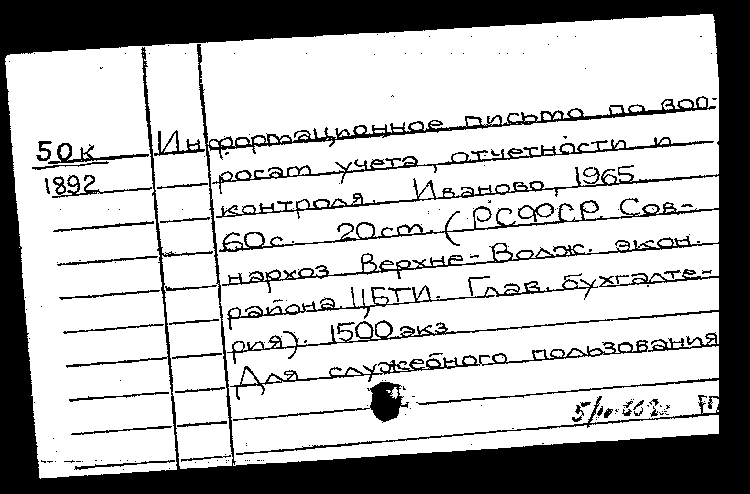 50к Информационное письмо по воп-
1892 росам учета, отчетности и
контроля. Иваново, 1965
60с. 20см. (РСФСР. Сов-
нархоз Верхне-Волж. экон.
района ЦБТИ. Глав. бухгалте-
рия). 1500 экз.
Для служебного пользования